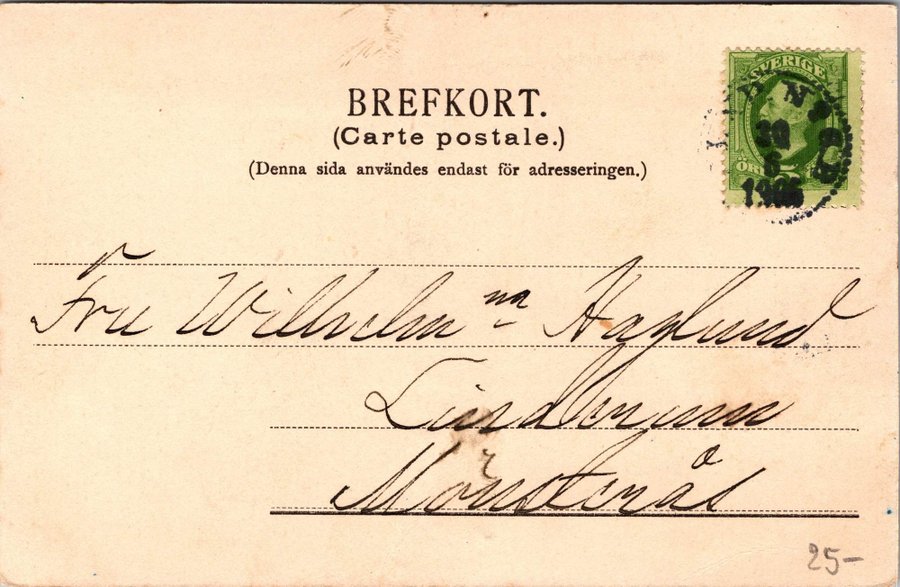 BREFKORT.
(Carte postale.)
(Denna sida användes endast för adresseringen.)
SVERIGE
30
6
1905
Fru Wilhelm na Haglund
Mönsterås
25-